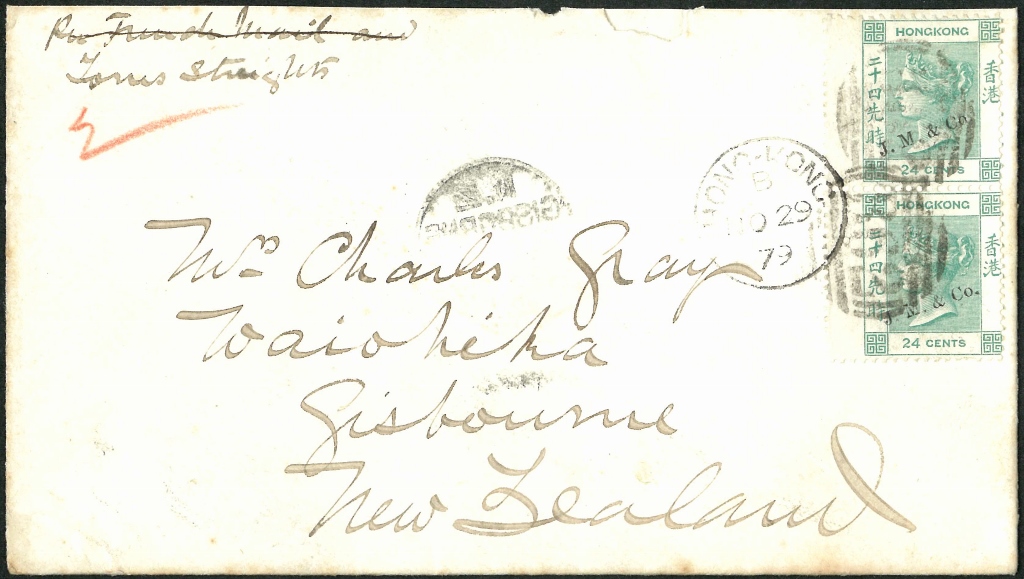 Per French Mail and
Torres Streights
HONGKONG
香港
二十四先時
J. M. & Co.
24 CENTS
HONGKONG
香港
二十四先時
J. M. & Co.
24 CENTS
HONG-KONG
B
29
79
GISBORNE
N.Z
Mr Charles Gray
Waiohika
Gisbourne
New Zealand